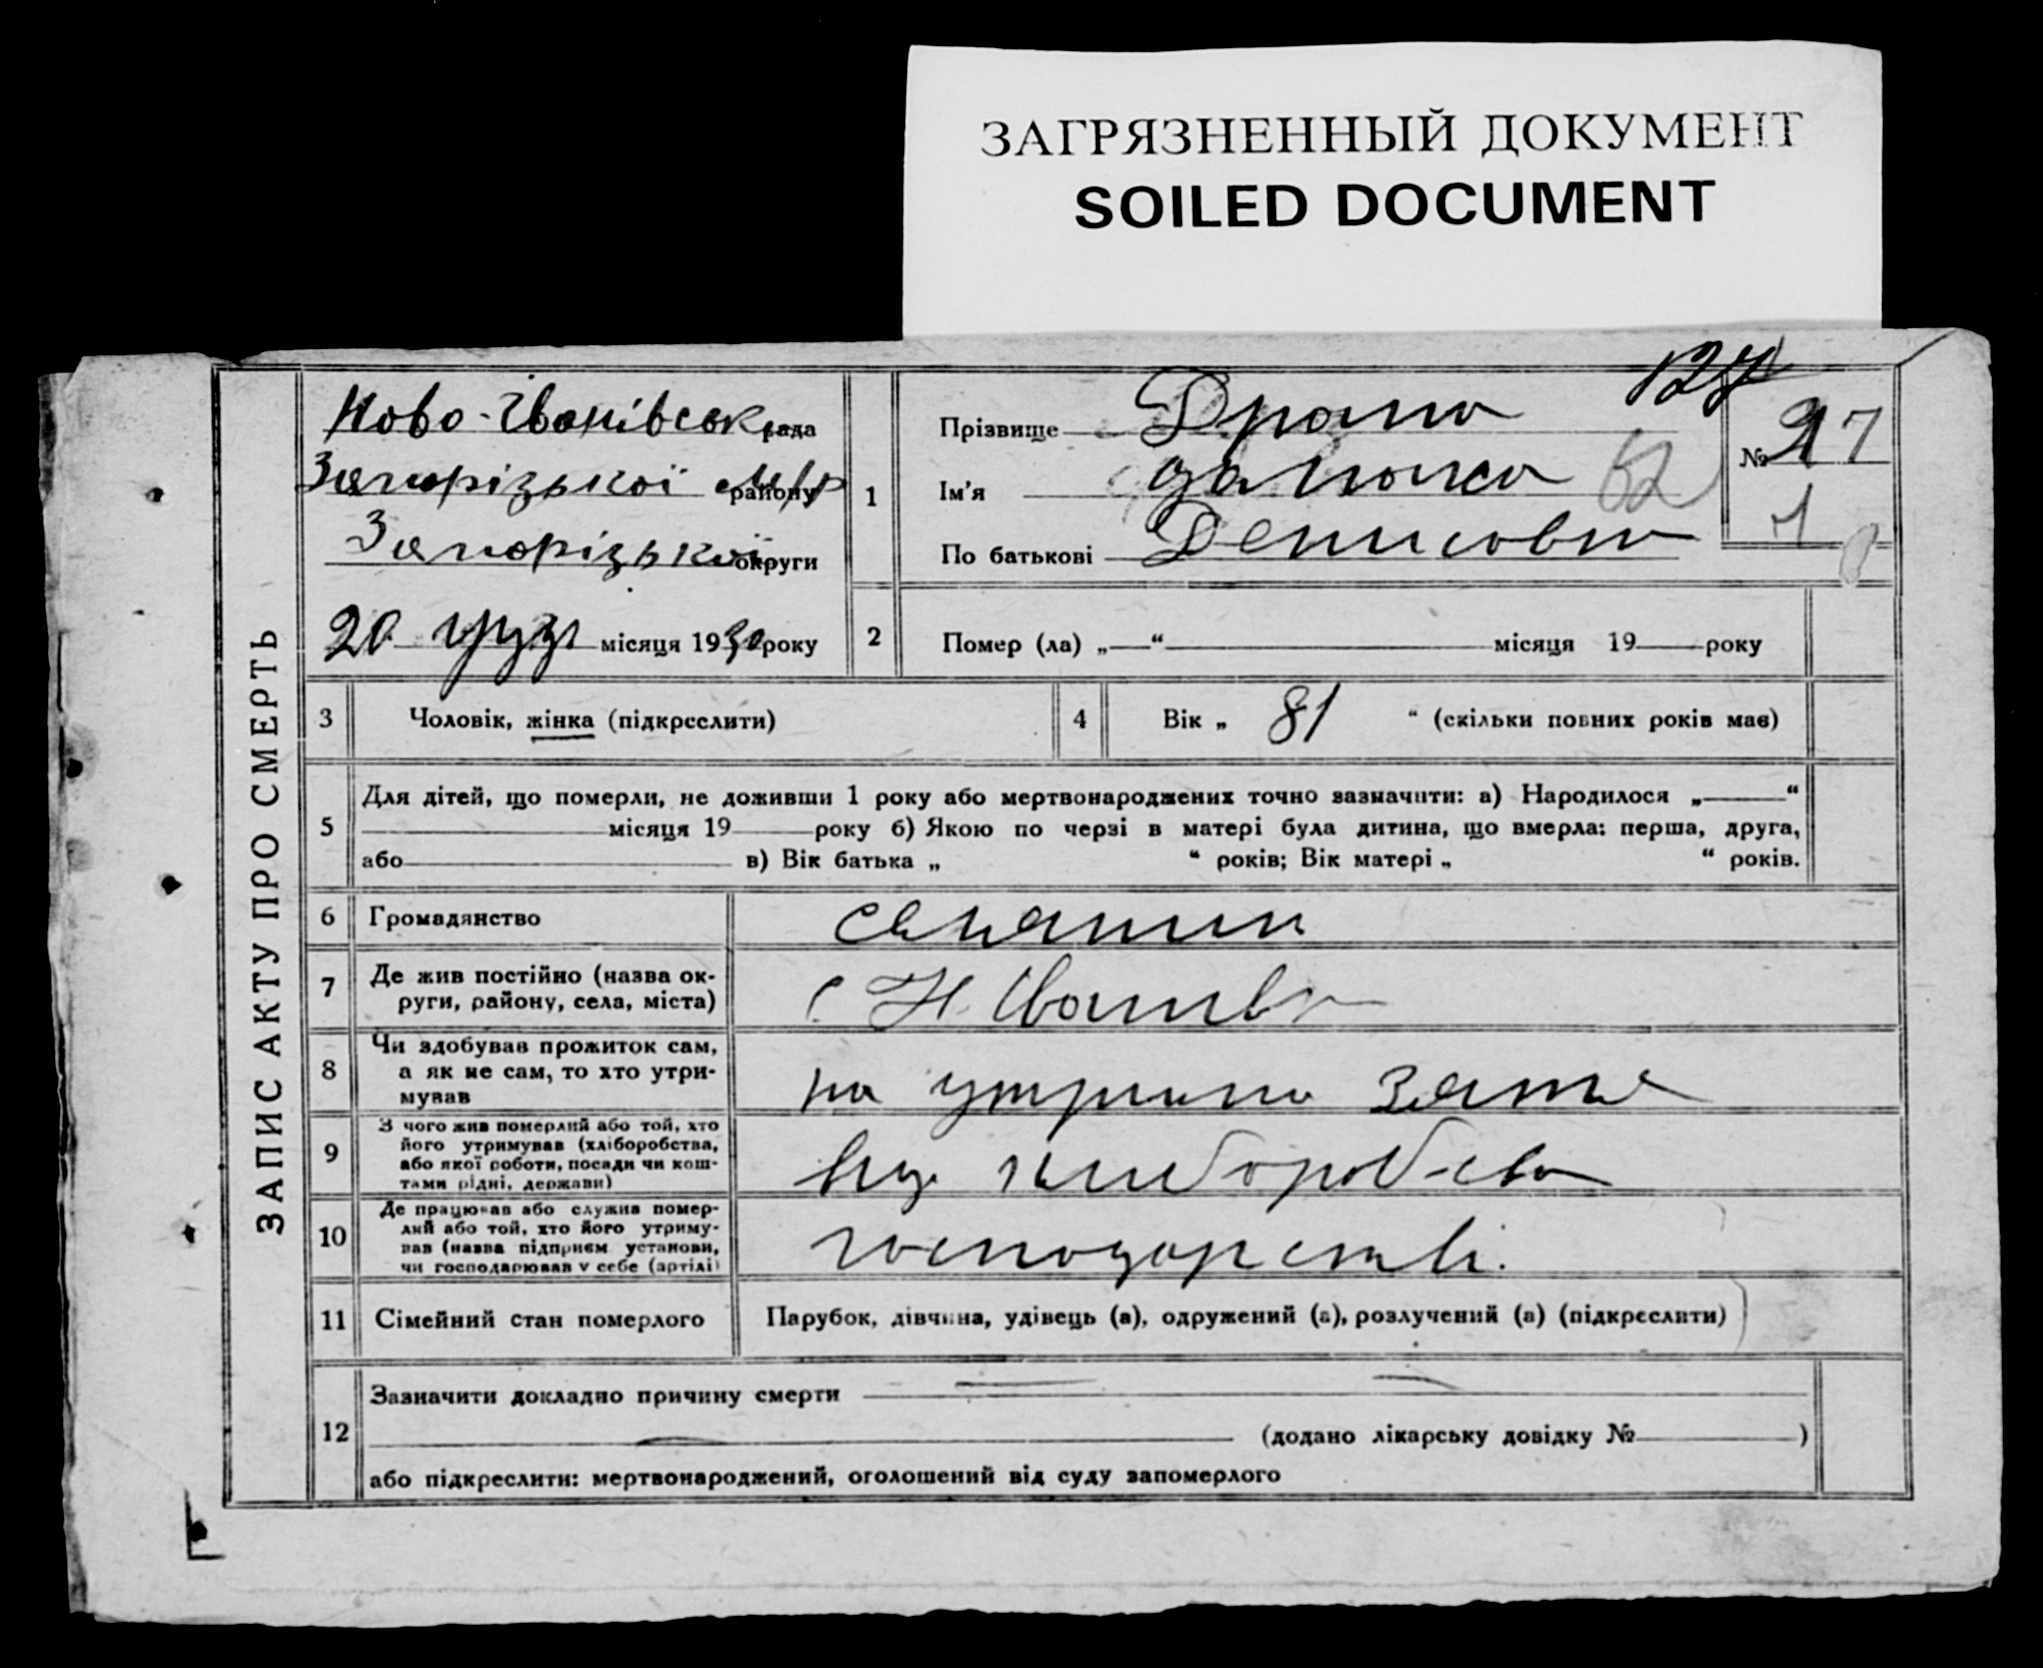 ЗАГРЯЗНЕННЫЙ ДОКУМЕНТ
SOILED DOCUMENT
ЗАПИС АКТУ ПРО СМЕРТЬ
Ново-Іванівськ рада
Запорізької району
Запорізької округи
20 місяця 1930 року
1
Прізвище
Ім'я
По батькові Денисовна
127
№ 17
62
1
2 Помер (ла) „ “ місяця 19 року
3 Чоловік, жінка (підкреслити)
4 Вік „ 81 “ (скільки повних років мав)
5 Для дітей, що померли, не доживши 1 року або мертвонароджених точно зазначити: а) Народилося „ “
місяця 19 року б) Якою по черзі в матері була дитина, що вмерла: перша, друга,
або в) Вік батька „ “ років; Вік матері „ “ років.
6 Громадянство селянин
7 Де жив постійно (назва ок-
руги, району, села, міста) с Н. Іванівка
8 Чи здобував прожиток сам,
а як не сам, то хто утри-
мував
на утриман зятя
9 З чого жив померлий або той, хто
його утримував (хліборобства,
або якої роботи, посади чи кош-
тами рідні, держави)
від хліборобства
10 Де працював або служив помер-
лий або той, хто його утриму-
вав (назва підприєм установи,
чи господарював у себе (артілі)
господарстві.
11 Сімейний стан померлого Парубок, дівчина, удівець (а), одружений (а), розлучений (а) (підкреслити)
12 Зазначити докладно причину смерти
(додано лікарську довідку № )
або підкреслити: мертвонароджений, оголошений від суду запомерлого